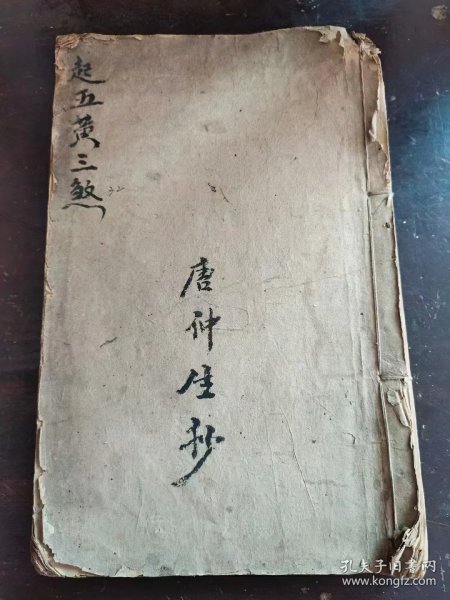 起五黄三煞
唐仲生抄
孔夫子旧书网
www.kongfz.com